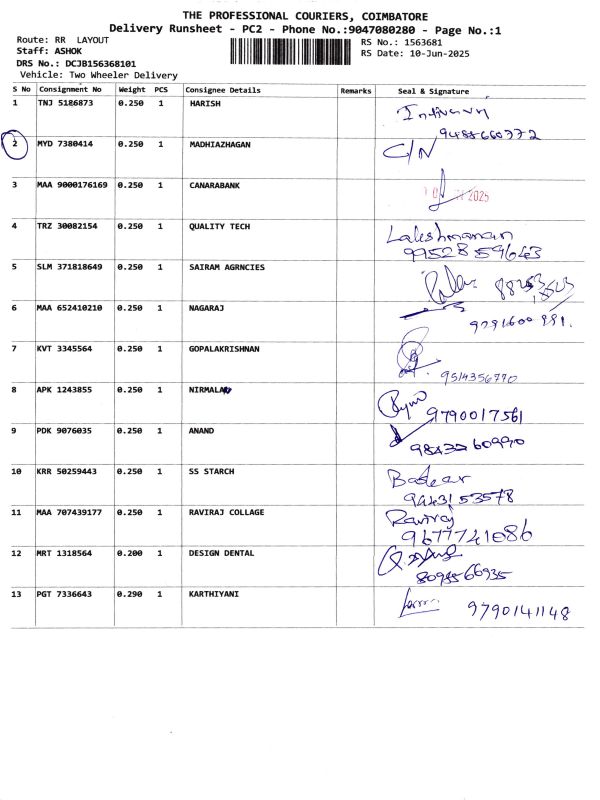 THE PROFESSIONAL COURIERS, COIMBATORE
Delivery Runsheet - PC2 - Phone No.:9047080280 - Page No.:1
Route: RR LAYOUT
RS No.: 1563681
Staff: ASHOK
RS Date: 10-Jun-2025
DRS No.: DCJB156368101
Vehicle: Two Wheeler Delivery
S No Consignment No Weight PCS Consignee Details Remarks Seal & Signature
1 TNJ 5186873 0.250 1 HARISH
2 MYD 7380414 0.250 1 MADHIAZHAGAN C/N
3 MAA 9000176169 0.250 1 CANARABANK 2025
4 TRZ 30082154 0.250 1 QUALITY TECH Lakshmanan
9952859643
5 SLM 371818649 0.250 1 SAIRAM AGRNCIES
6 MAA 652410210 0.250 1 NAGARAJ 9791600991.
7 KVT 3345564 0.250 1 GOPALAKRISHNAN
9514356770
8 APK 1243855 0.250 1 NIRMALA
9790017561
9 PDK 9076035 0.250 1 ANAND
10 KRR 50259443 0.250 1 SS STARCH
9443153578
11 MAA 707439177 0.250 1 RAVIRAJ COLLAGE Raviraj
9677741086
12 MRT 1318564 0.200 1 DESIGN DENTAL
13 PGT 7336643 0.290 1 KARTHIYANI 9790141148